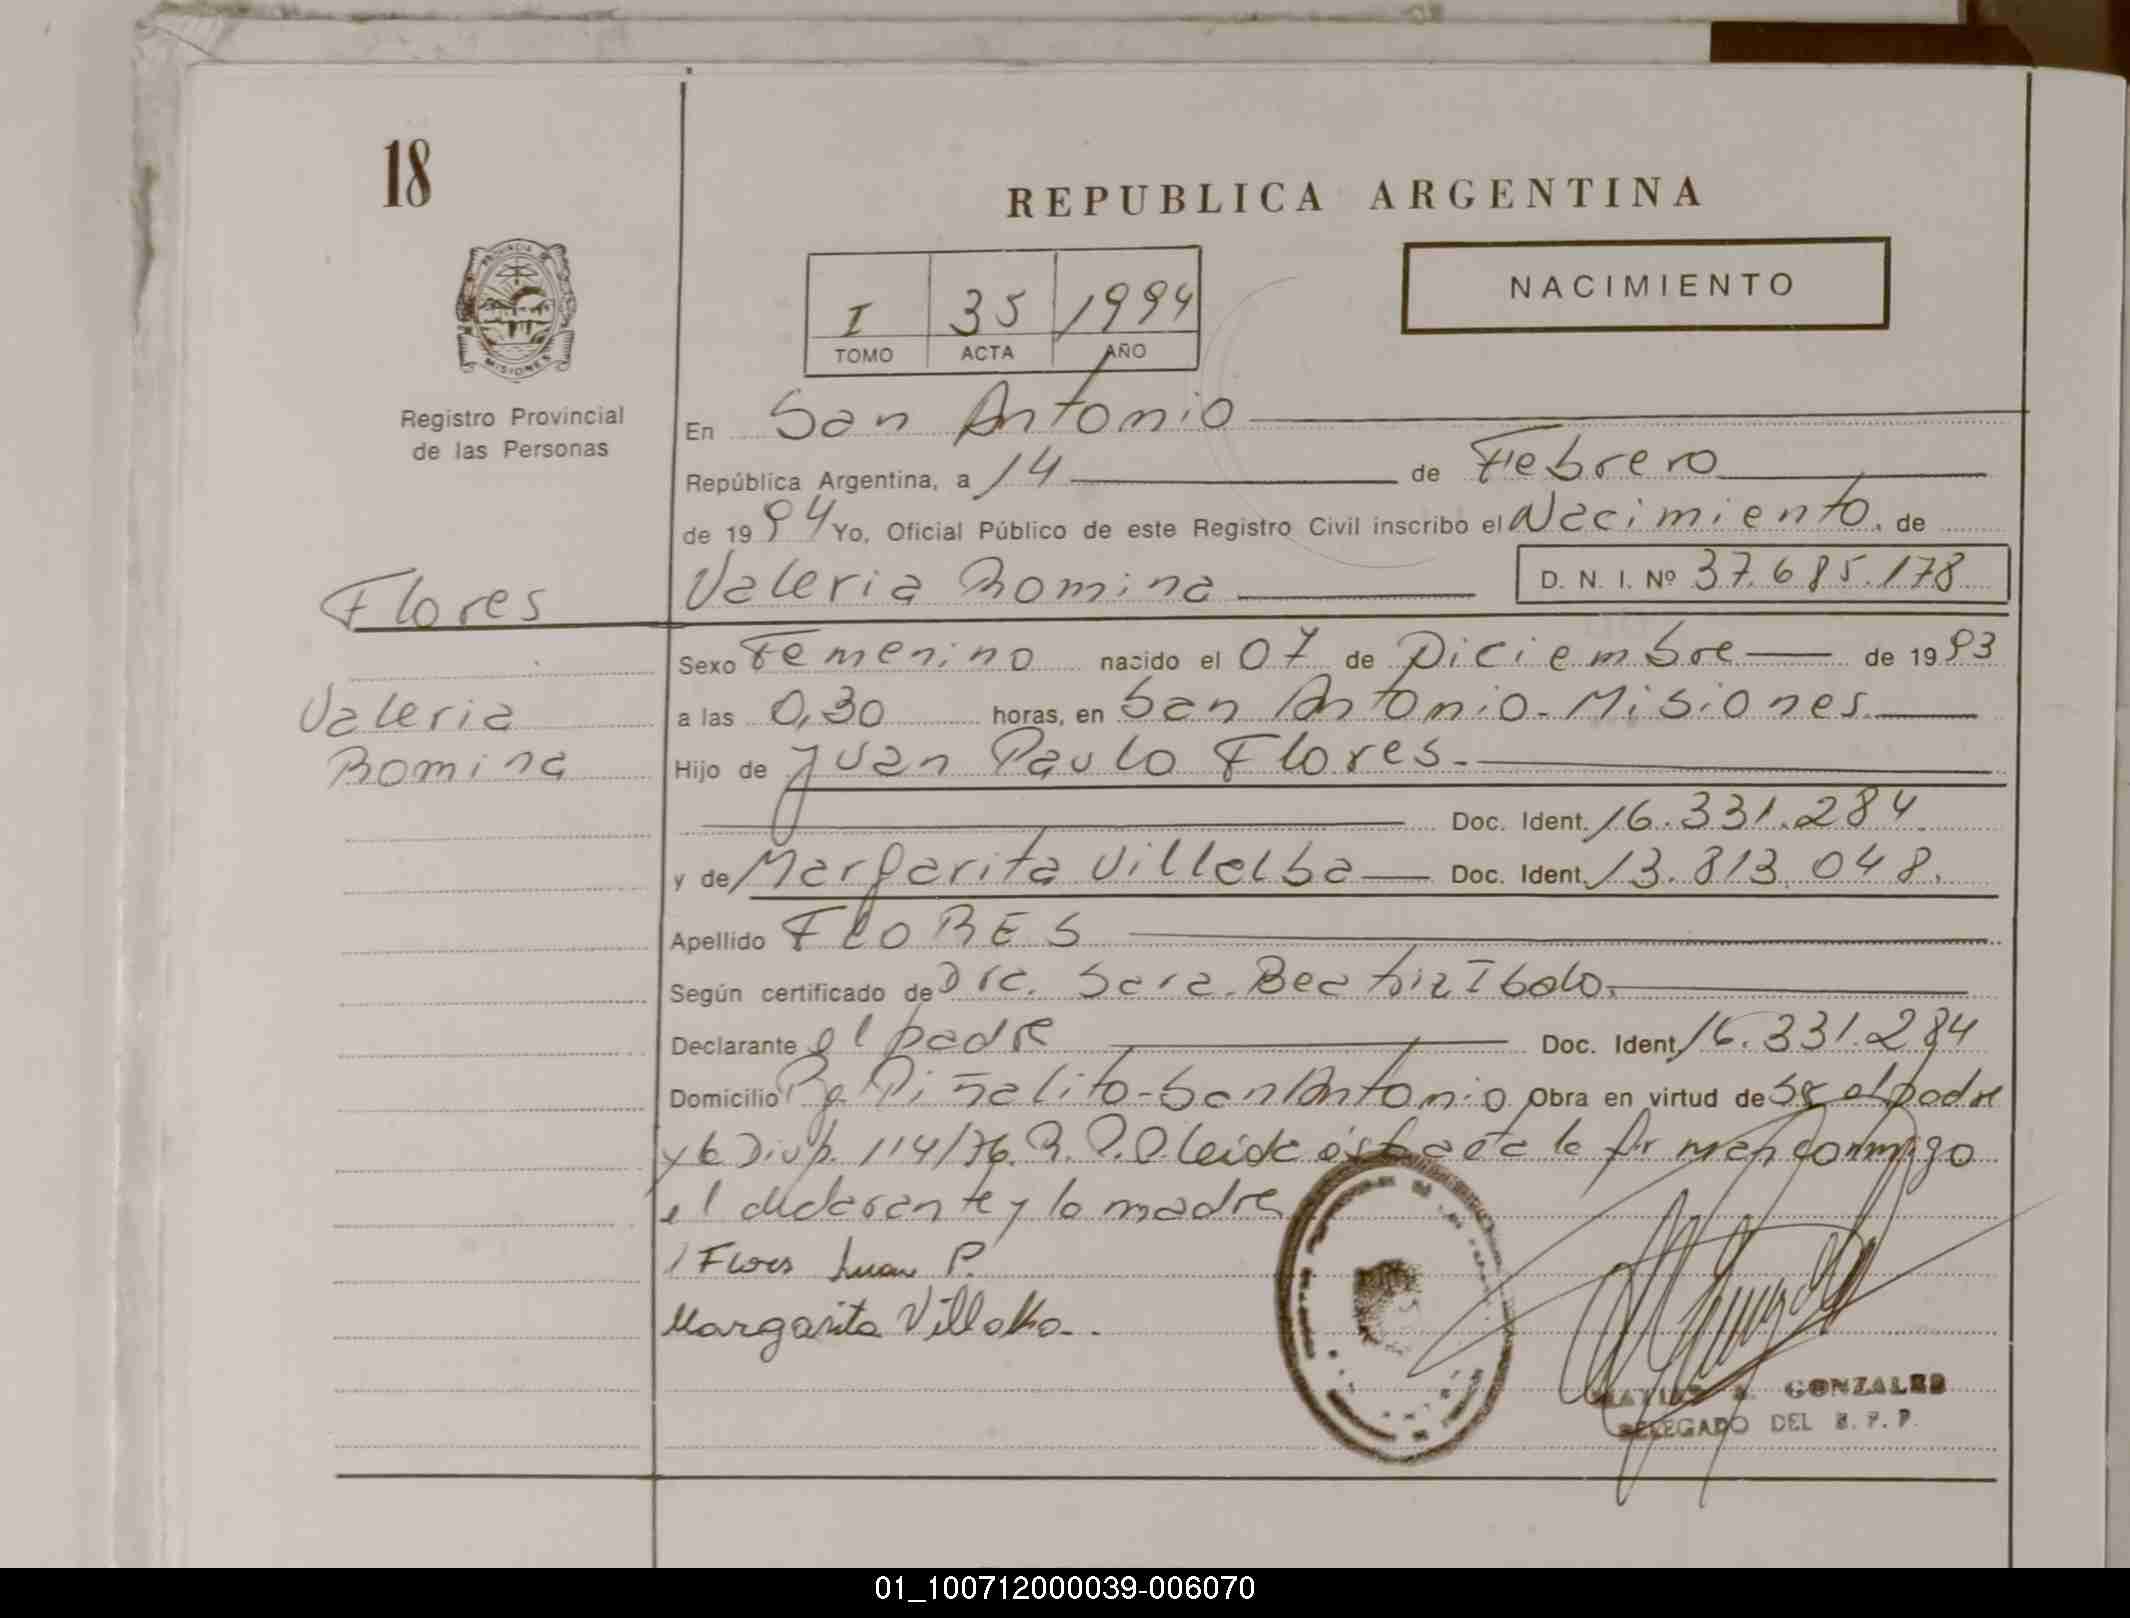 18
REPUBLICA ARGENTINA
PROVINCIA DE
MISIONES
NACIMIENTO
I 35 1994
TOMO ACTA AÑO
Registro Provincial
de las Personas
En San Antonio
República Argentina, a 14 de Febrero
de 1994 Yo, Oficial Público de este Registro Civil inscribo el Nacimiento, de
Flores
Valeria Romina D. N. I. Nº 37.685.178
Sexo Femenino nacido el 07 de Diciembre de 1993
Valeria
a las 0,30 horas, en San Antonio-Misiones.
Romina
Hijo de Juan Paulo Flores.-
Doc. Ident. 16.331.284
y de Margarita Villalba Doc. Ident. 13.813.048.
Apellido FLORES
Según certificado de Dra. Sara Beatriz
Declarante el padre Doc. Ident. 16.331.284
Domicilio San Antonio Obra en virtud de ser el padre
y la Disp. 114/76. R.P.P. leída ésta acta la firman conmigo
el declarante y la madre
Flores Juan P.
Margarita Villalba..
GONZALES
DELEGADO DEL R.P.P.
01_100712000039-006070